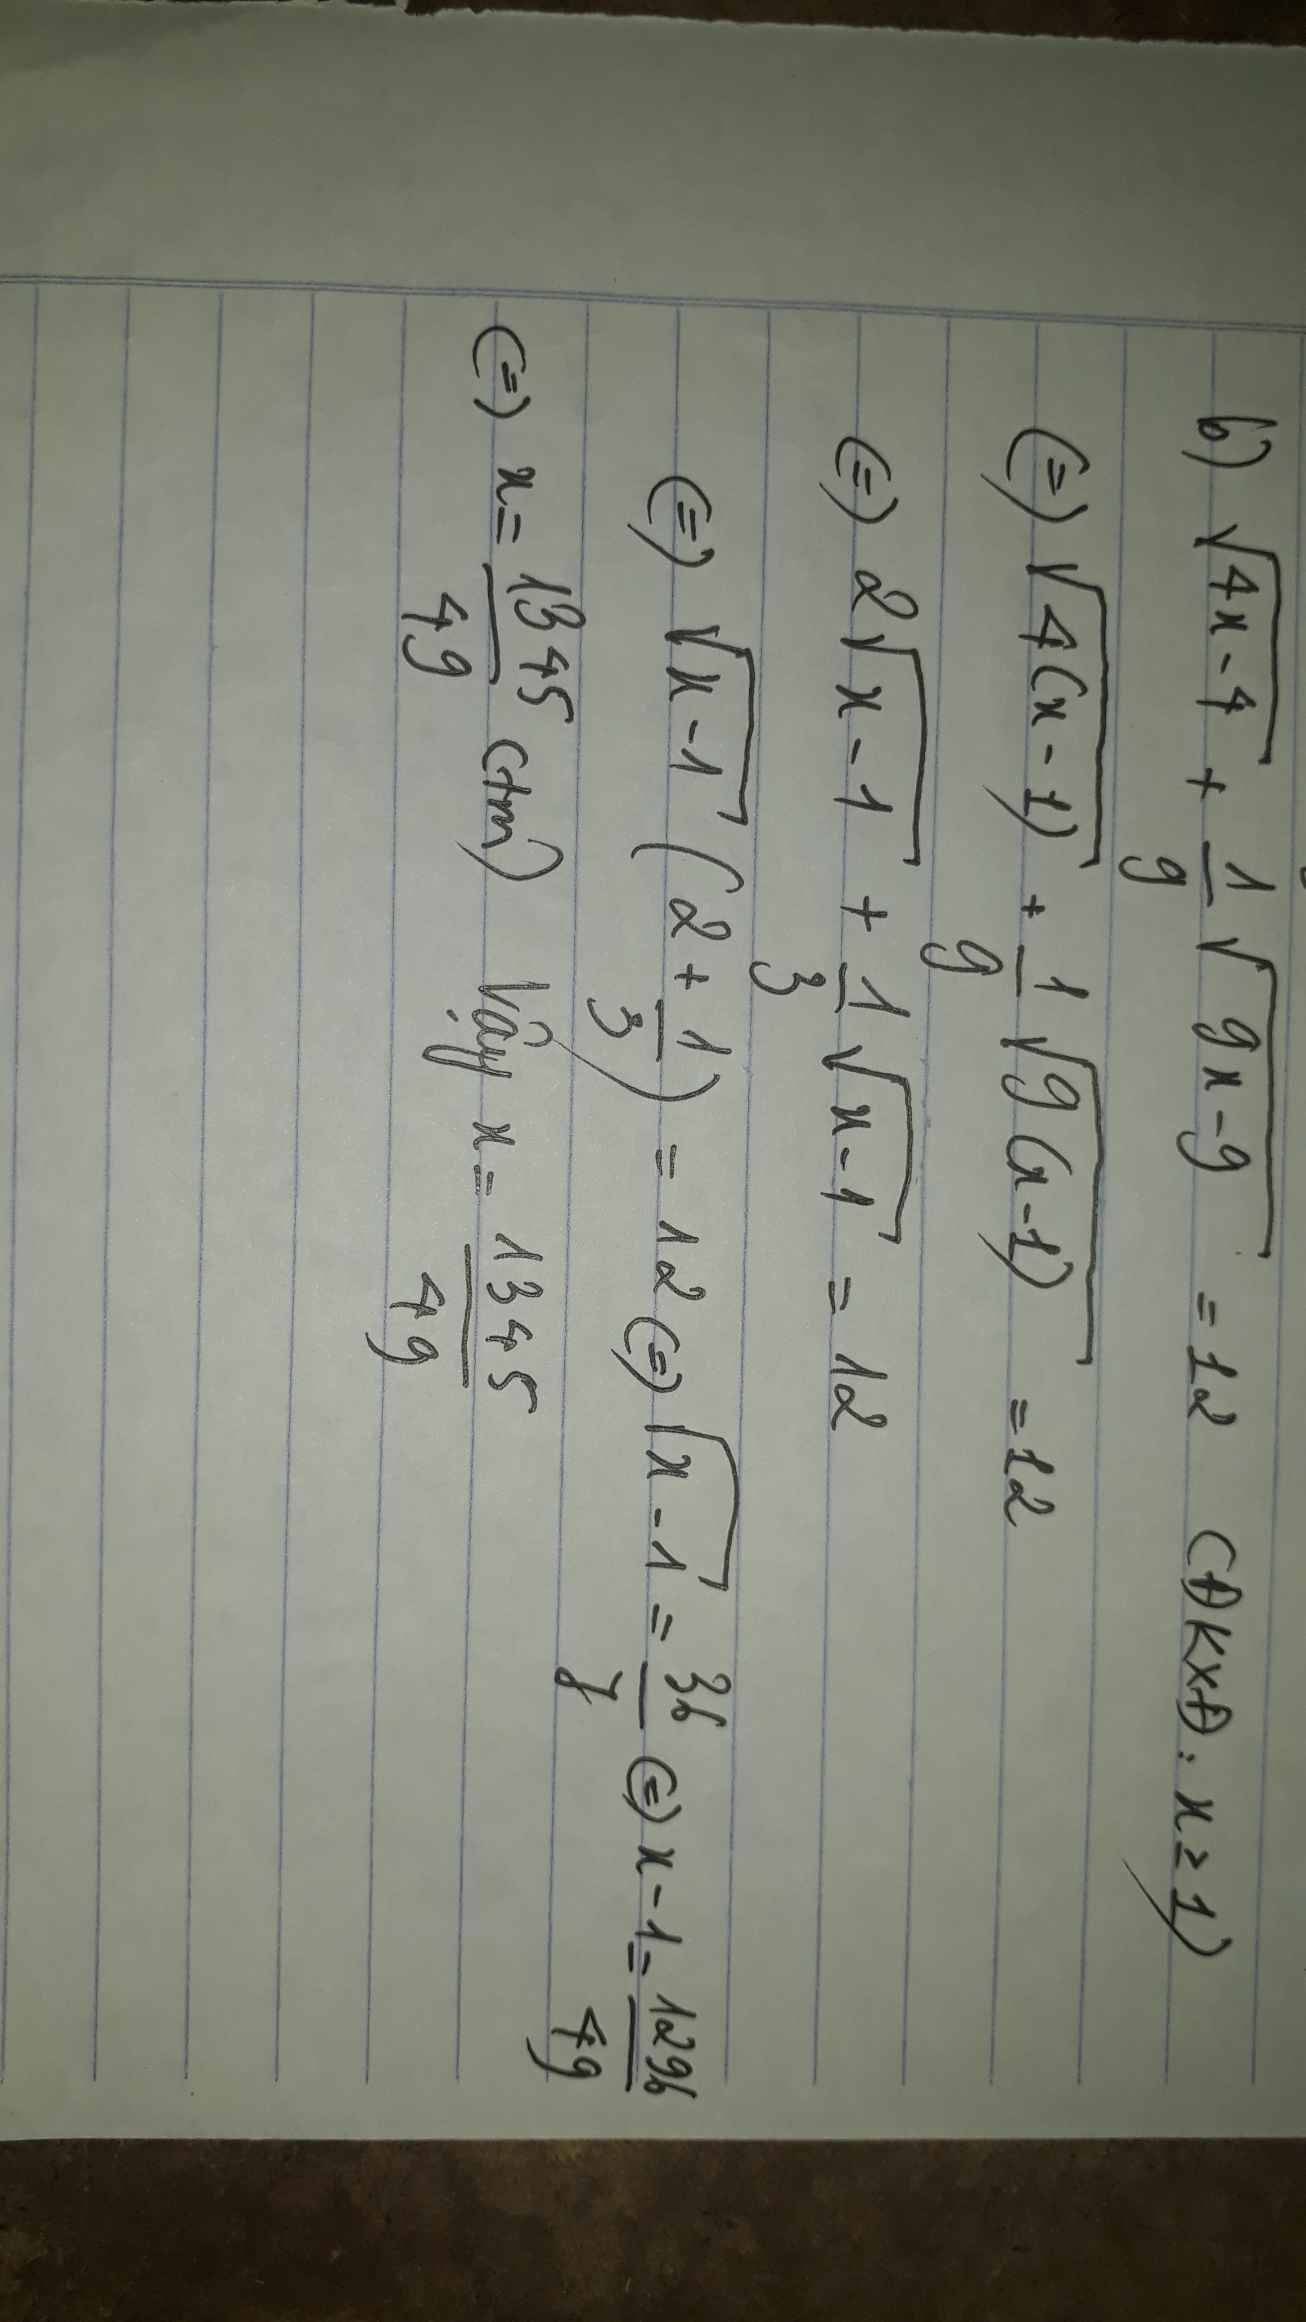 b) √(4x-4) + 1/9 √(9x-9) = 12 (ĐKXĐ: x ≥ 1)
(=) √(4(x-1)) + 1/9 √(9(x-1)) = 12
(=) 2√(x-1) + 1/3 √(x-1) = 12
(=) √(x-1) (2 + 1/3) = 12 (=) √(x-1) = 36/7 (=) x-1 = 1296/49
(=) x = 1345/49 (tm) Vậy x = 1345/49